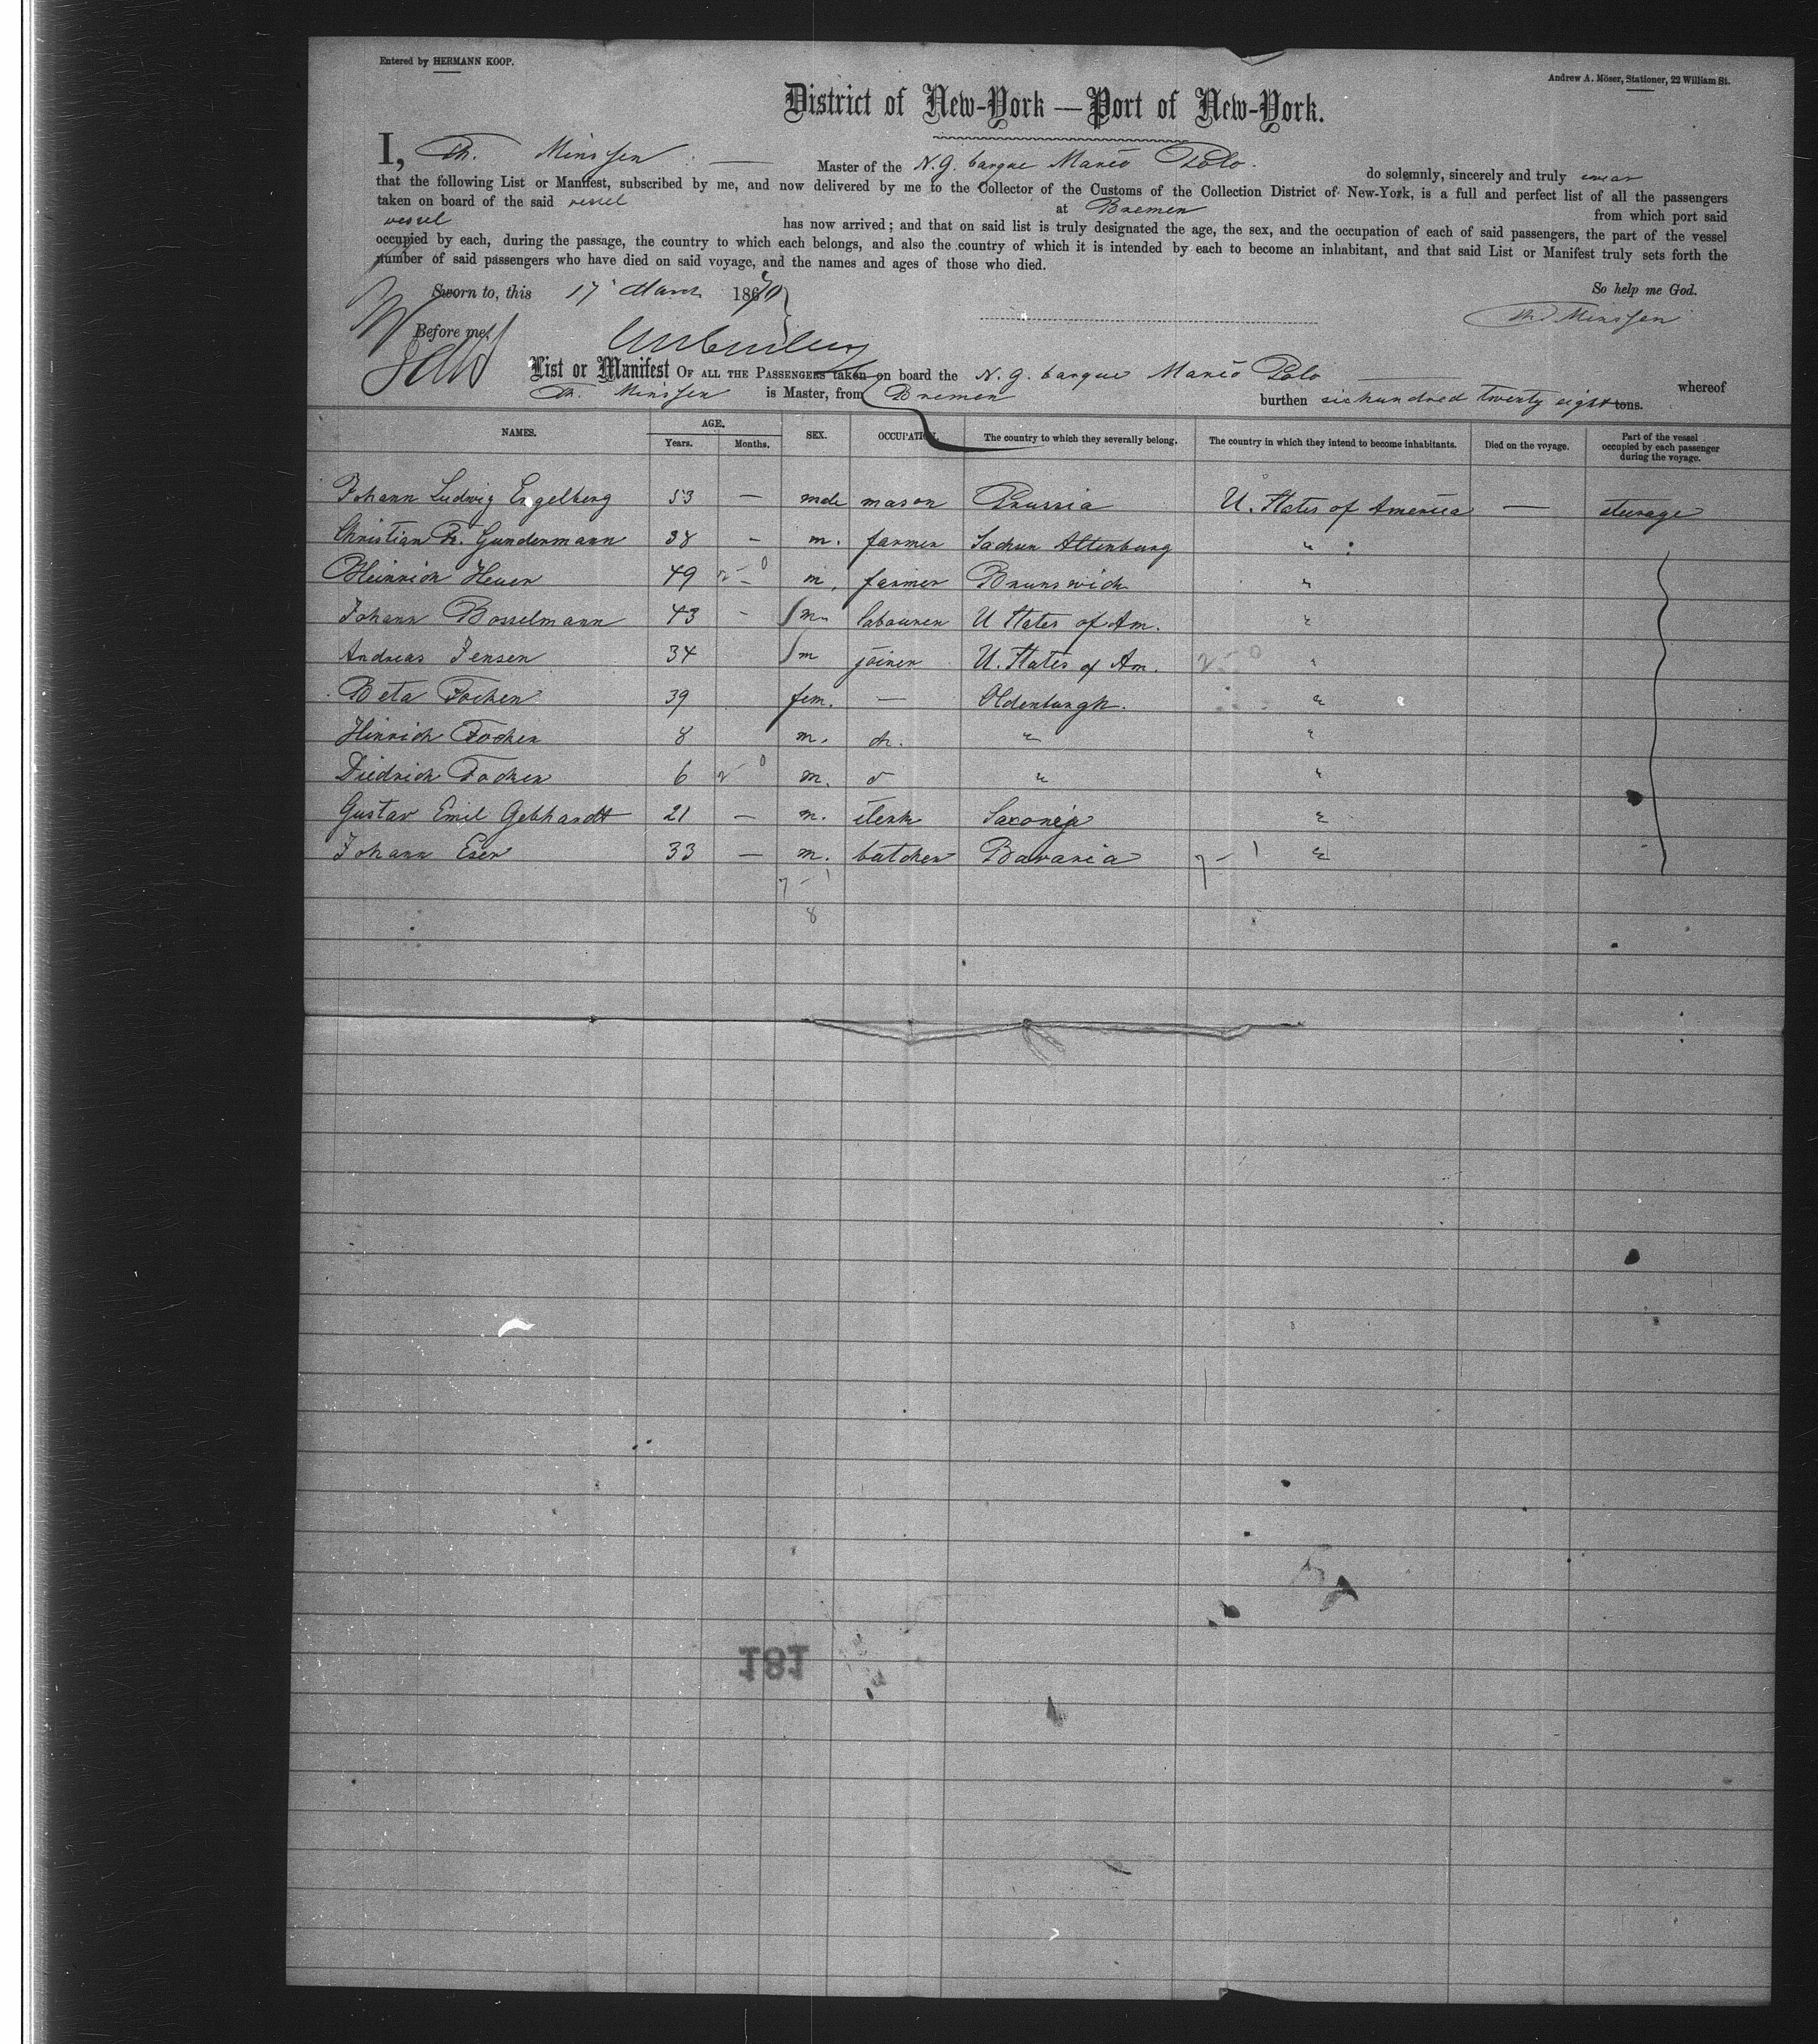 Entered by HERMANN KOOP.
Andrew A. Möser, Stationer, 22 William St.
District of New-York — Port of New-York.
I, Th. Minssen — Master of the N. G. barque Marco Polo. do solemnly, sincerely and truly swear
that the following List or Manifest, subscribed by me, and now delivered by me to the Collector of the Customs of the Collection District of New-York, is a full and perfect list of all the passengers
taken on board of the said vessel at Bremen from which port said
vessel has now arrived; and that on said list is truly designated the age, the sex, and the occupation of each of said passengers, the part of the vessel
occupied by each, during the passage, the country to which each belongs, and also the country of which it is intended by each to become an inhabitant, and that said List or Manifest truly sets forth the
number of said passengers who have died on said voyage, and the names and ages of those who died.
Sworn to, this 17 March 1870 So help me God.
Th. Minssen
Before me,
List or Manifest OF ALL THE PASSENGERS taken on board the N. G. barque Marco Polo — whereof
Th. Minssen is Master, from Bremen burthen sixhundred twenty eight tons.
NAMES. AGE. Years. Months. SEX. OCCUPATION. The country to which they severally belong. The country in which they intend to become inhabitants. Died on the voyage. Part of the vessel occupied by each passenger during the voyage.
Johann Ludwig Engelberg 53 — male mason Prussia U. States of America — steerage
Christian Fr. Gundermann 38 - m. farmer Sachsen Altenburg "
Heinrich Heuer 49 2-0 m. farmer Brunswick "
Johann Bosselmann 43 - m. labourer U States of Am. "
Andreas Jensen 34 m joiner U. States of Am. 2-0 "
Beta Focken 39 fem. — Oldenburgh. "
Hinrich Focken 8 m. ch. " "
Diedrich Focken 6 2-0 m. d " "
Gustav Emil Gebhardt 21 — m. clerk Saxony "
Johann Eser 33 — m. butcher Bavaria 7-1 "
7-1
8
181